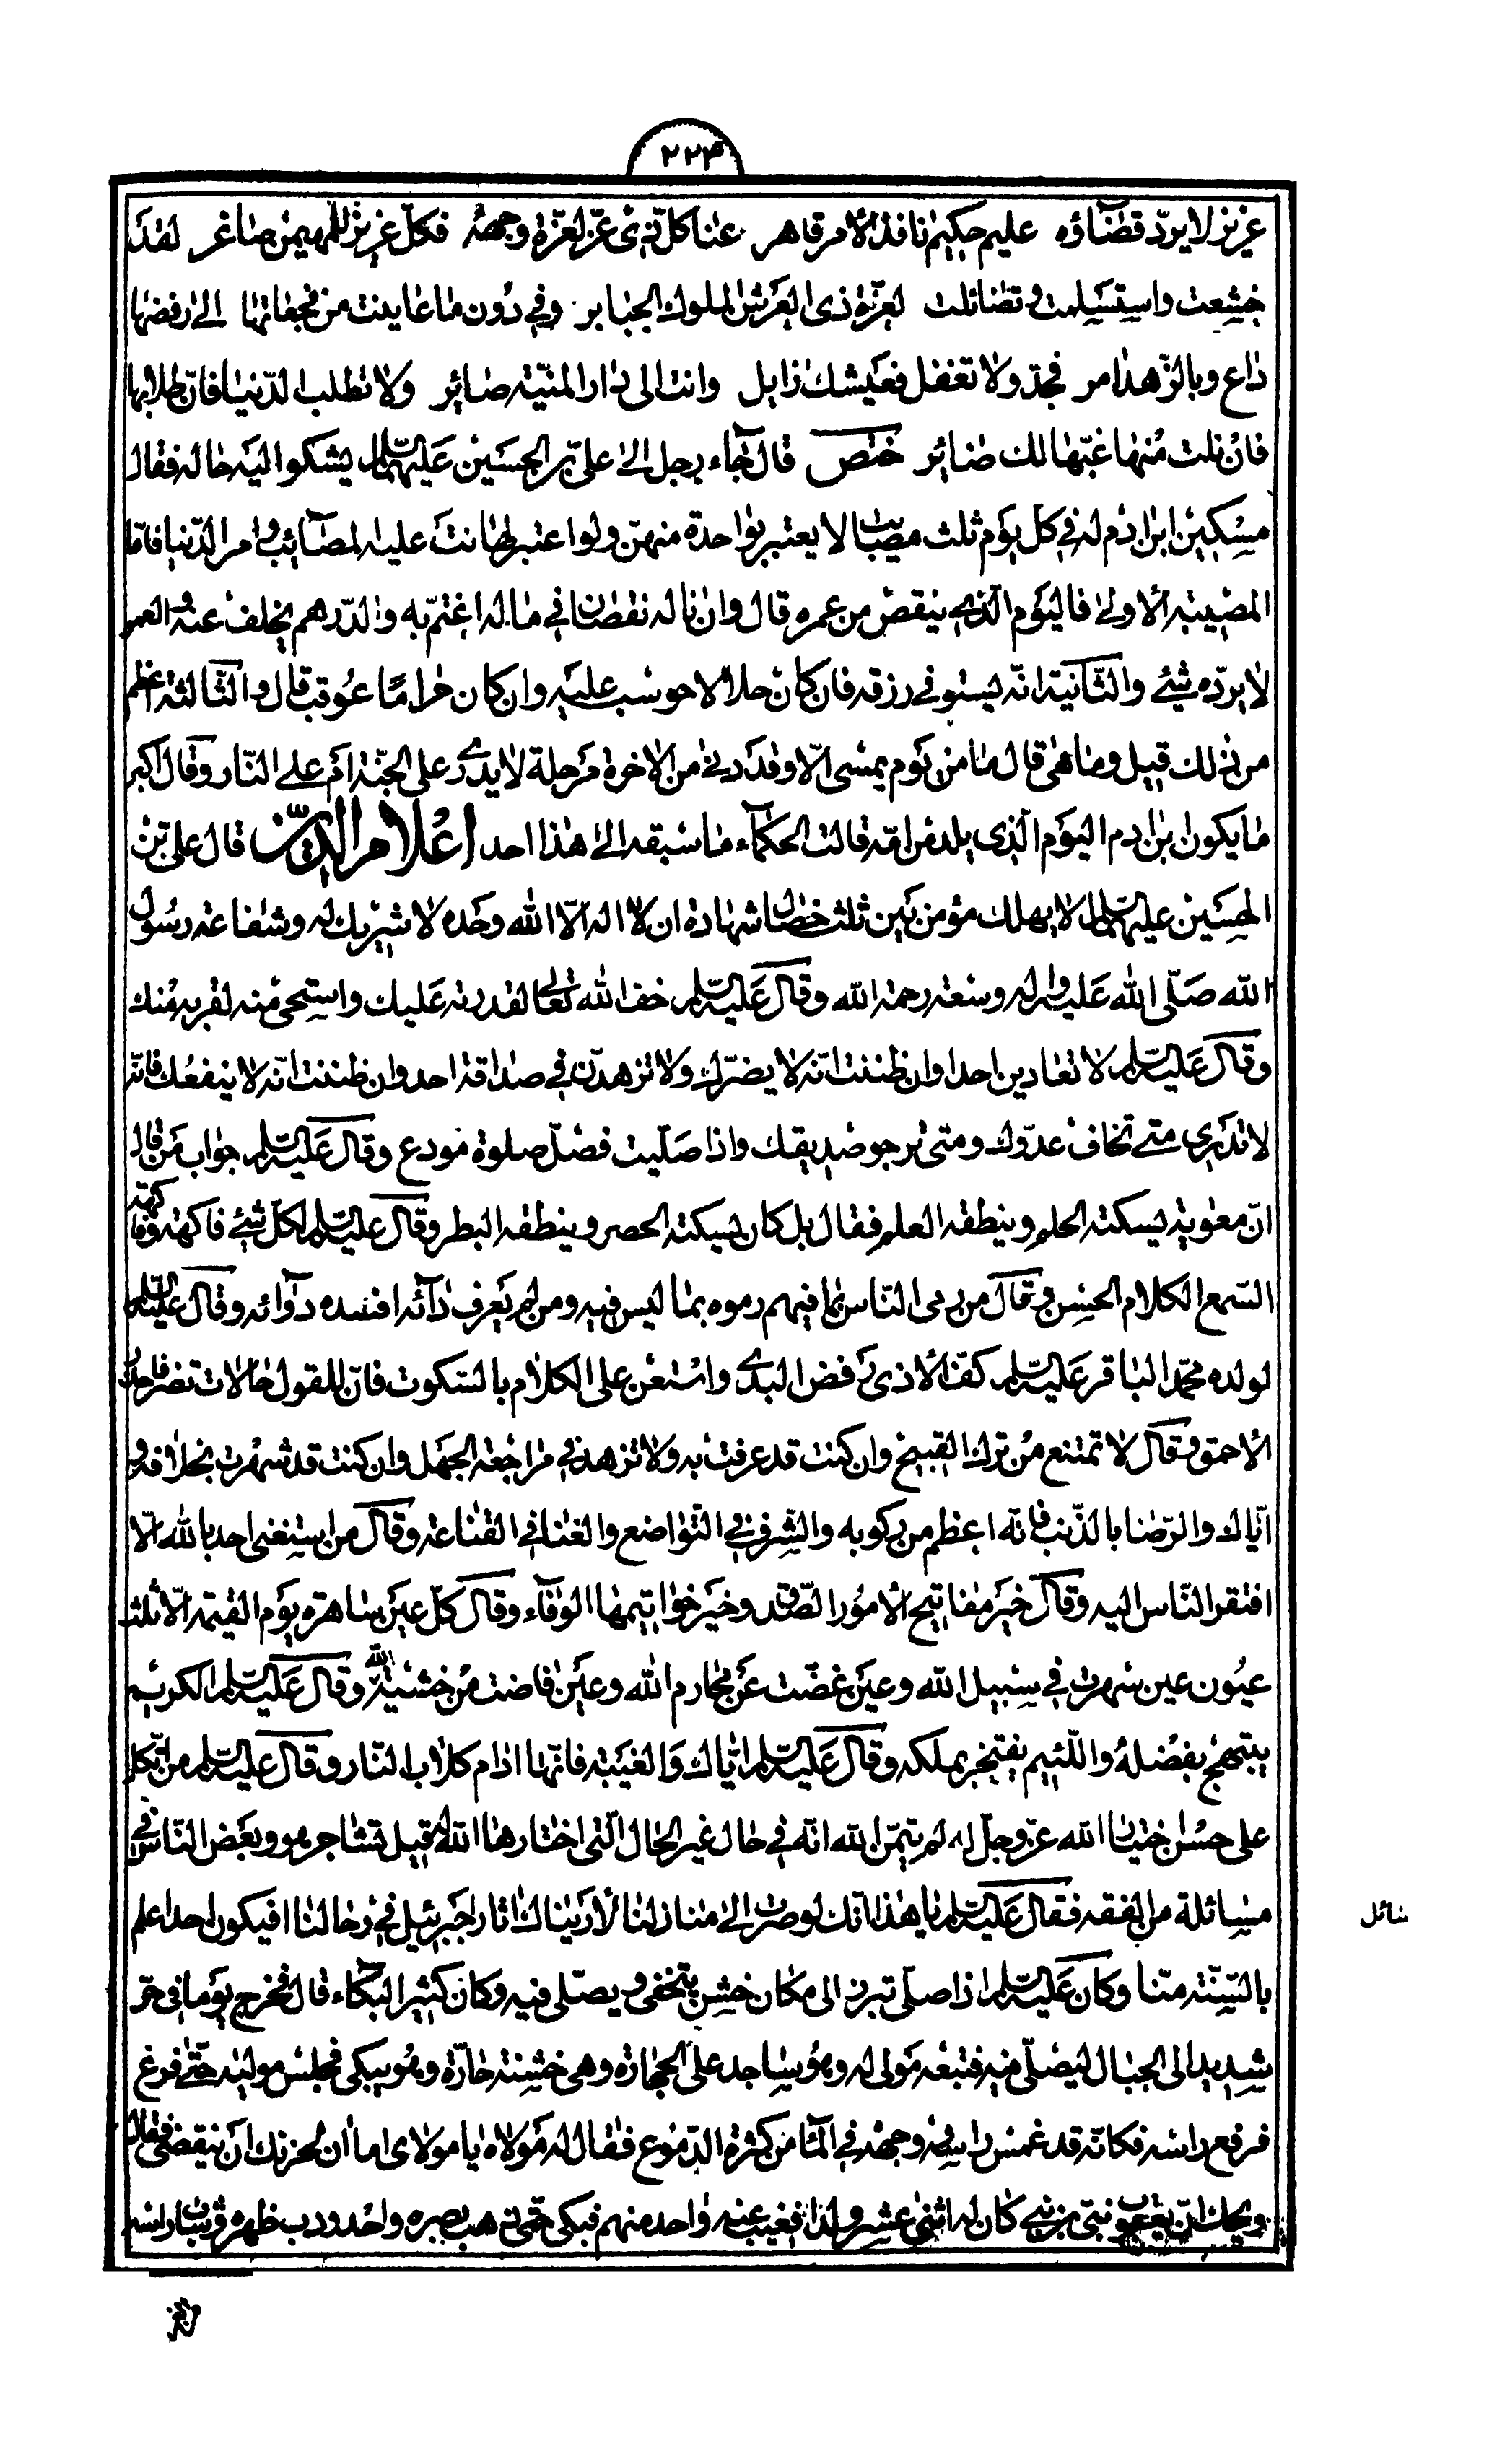 ٢٢۴
عزيز لا يردّ قضاؤه عليم حكيم نافذ الأمر قاهر عنا كلّ ذى عزّ لعزّة وجهه فكلّ عزيز للمهيمن صاغر لقد
خشعت واستسلمت وتضائلت لعزّة ذى العرش الملوك الجبابر وفى دون ما عاينت من فجعاتها الى رفضها
داع وبالزّهد امر فجدّ ولا تغفل فعيشك زايل وانت الى دار المنيّة صاير ولا تطلب الدّنيا فانّ طلابها
فان نلت منها غبّها لك ضائر ختص قال جاء رجل الى علىّ بن الحسين عليهما السلام يشكوا اليه حاله فقال
مسكين ابن ادم له فى كل يوم ثلث مصايب لا يعتبر بواحدة منهنّ ولو اعتبر لهانت عليه المصائب وامر الدّنيا فامّا
المصيبة الاولى فاليوم الّذى ينقص من عمره قال وان ناله نقصان فى ماله اغتمّ به والدّرهم يخلف عنه والعمر
لا يردّه شئ والثّانية انّه يستوفى رزقه فان كان حلالا حوسب عليه وان كان حراما عوقب قال والثّالثة اعظم
من ذلك قيل وما هى قال ما من يوم يمسى الّا وقد دنى من الاخرة مرحلة لا يدرى على الجنّة ام على النّار وقال اكبر
ما يكون ابن ادم اليوم الّذى يلد من امّه قالت الحكماء ما سبقه الى هذا احد اعلام الدّين قال علىّ بن
الحسين عليهما السلام لا يهلك مؤمن بين ثلث خصال شهادة ان لا اله الّا الله وحده لا شريك له وشفاعة رسول
الله صلّى الله عليه واله وسعة رحمة الله وقال عليه السّلم خف الله تعالى لقدرته عليك واستحى منه لقربه منك
وقال عليه السّلم لا تعادين احدا وان ظننت انّه لا يضرّك ولا تزهدنّ فى صداقة احد وان ظننت انّه لا ينفعك فانّه
لا تدرى متى تخاف عدوّك ومتى ترجو صديقك واذا صلّيت فصلّ صلوة مودع وقال عليه السّلم جواب من قال
انّ معوية يسكته الحلم وينطقه العلم فقال بل كان يسكته الحصر وينطقه البطر وقال عليه السّلم لكلّ شئ فاكهة وفاكهة
السّمع الكلام الحسن وقال من رمى النّاس بما فيهم رموه بما ليس فيه ومن لم يعرف دائه افسده دوائه وقال عليه السّلم
لولده محمّد الباقر عليه السّلم كفّ الاذى رفض البذى واستعن على الكلام بالسّكوت فانّ للقول حالات تضر فاحذر
الاحمق وقال لا تمتنع من ترك القبيح وان كنت قد عرفت به ولا تزهد فى مراجعة الجهل وان كنت قد شهرت بخلافه و
ايّاك والرّضا بالذّنب فانّه اعظم من ركوبه والشّرف فى التّواضع والغنا فى القناعة وقال من استغنى احد بالله الّا
افتقر النّاس اليه وقال خير مفاتيح الأمور الصّدق وخير خواتيمها الوفاء وقال كلّ عين ساهرة يوم القيمة الّا ثلث
عيون عين سهرت فى سبيل الله وعين غضّت عن محارم الله وعين فاضت من خشية الله وقال عليه السّلم الكريم
يبتهج بفضله واللّئيم يفتخر بملكه وقال عليه السّلم ايّاك والغيبة فانّها ادام كلاب النّار وقال عليه السّلم من اتّكل
على حسن اختيار الله عزّ وجلّ له لم يتمنّ انّه فى حال غير الحال الّتى اختارها الله له قيل تشاجر هو وبعض النّاس فى
مسائلة من الفقه فقال عليه السّلم يا هذا انّك لو صرت الى منازلنا لأريناك اثار جبرئيل فى رحالنا افيكون احد اعلم
بالسّنّة منّا وكان عليه السّلم اذا صلّى تبرز الى مكان خشن يتخفى ويصلّى فيه وكان كثير البكاء قال فخرج يوما فى حرّ
شديد الى الجبال ليصلّى فيه فتبعه مولى له وهو ساجد على الحجارة وهى خشنة حارّة وهو يبكى فجلس موليه حتّى فرغ
فرفع راسه فكانّه قد غمس راسه ووجهه فى المآء من كثرة الدّموع فقال له مولاه يا مولاى اما ان لحزنك ان ينقضى فقال
ويحك انّ يعقوب نبىّ بن نبى كان له اثنى عشر ولدا فغيب عنه واحد منهم فبكى حتّى ذهب بصره واحدودب ظهره وشاب راسه
سائل